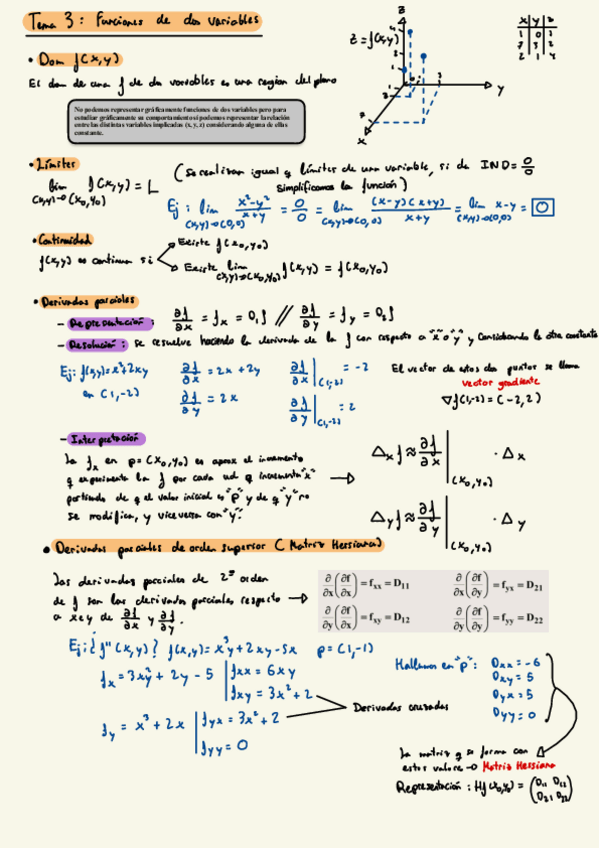 Tema 3: Funciones de dos variables
Z
z = f(x,y)
Y
X
x y z
• Dom f(x,y)
El dom de una f de dos variables es una region del plano
No podemos representar gráficamente funciones de dos variables pero para
estudiar gráficamente su comportamiento sí podemos representar la relación
entre las distintas variables implicadas (x, y, z) considerando alguna de ellas
constante.
• Límites
lim f(x,y) = L
(x,y)→(x₀,y₀)
(Se realizan igual q límites de una variable, si da IND = 0/0
simplificamos la función)
Ej: lim x²-y²/x+y = 0/0 = lim (x-y)(x+y)/x+y = lim x-y = 0
(x,y)→(0,0) (x,y)→(0,0) (x,y)→(0,0)
• Continuidad
f(x,y) es continua si
Existe f(x₀,y₀)
Existe lim f(x,y) = f(x₀,y₀)
(x,y)→(x₀,y₀)
• Derivadas parciales
- Representación: ∂f/∂x = fx = D₁f // ∂f/∂y = fy = D₂f
- Resolución: se resuelve haciendo la derivada de la f con respecto a "x" o "y" y considerando la otra constante
Ej: f(x,y)=x²+2xy
en (1,-2)
∂f/∂x = 2x + 2y
∂f/∂y = 2x
∂f/∂x |(1,-2) = -2
∂f/∂y |(1,-2) = 2
El vector de estos dos puntos se llama
vector gradiente
∇f(1,-2) = (-2,2)
- Interpretación
La fx en p=(x₀,y₀) es aprox el incremento
q experimenta la f por cada ud q incrementa "x"
partiendo de q el valor inicial es "p" y de q "y" no
se modifica, y viceversa con "y".
Δx f ≈ ∂f/∂x |(x₀,y₀) · Δx
Δy f ≈ ∂f/∂y |(x₀,y₀) · Δy
• Derivadas parciales de orden superior (Matriz Hessiana)
Las derivadas parciales de 2º orden
de f son las derivadas parciales respecto
a x e y de ∂f/∂x y ∂f/∂y.
∂/∂x (∂f/∂x) = fxx = D11 ∂/∂x (∂f/∂y) = fyx = D21
∂/∂y (∂f/∂x) = fxy = D12 ∂/∂y (∂f/∂y) = fyy = D22
Ej: ¿f''(x,y)? f(x,y) = x³y + 2xy - 5x p = (1,-1)
fx = 3x²y + 2y - 5
fxx = 6xy
fxy = 3x² + 2
fy = x³ + 2x
fyx = 3x² + 2
fyy = 0
Derivadas cruzadas
Hallamos en "p":
Dxx = -6
Dxy = 5
Dyx = 5
Dyy = 0
La matriz q se forma con
estos valores → Matriz Hessiana
Representación: Hf(x₀,y₀) = (D11 D12
D21 D22)